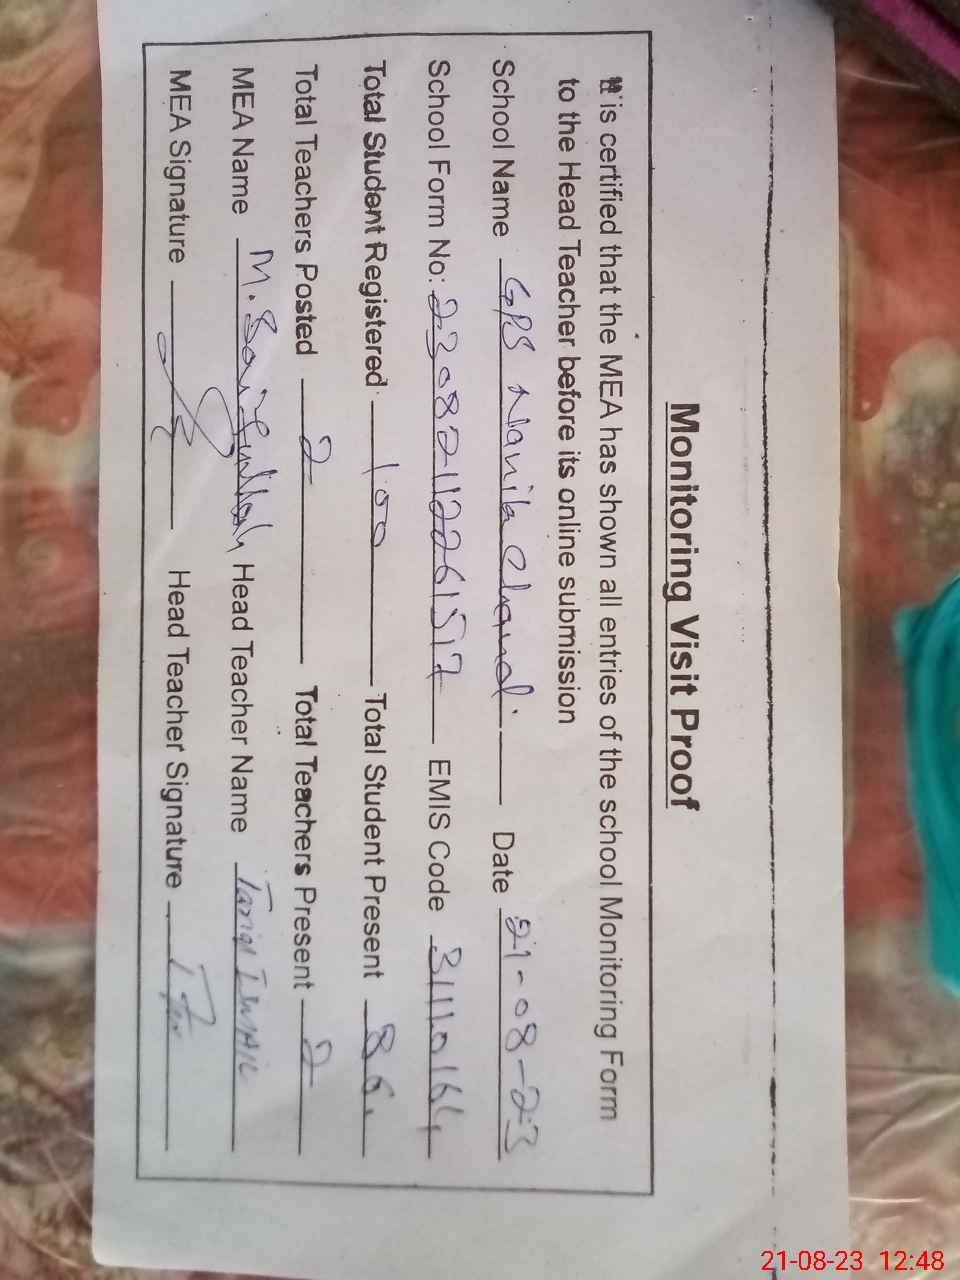 Monitoring Visit Proof
It is certified that the MEA has shown all entries of the school Monitoring Form
to the Head Teacher before its online submission
School Name GPS Nanik Chand. Date 21-08-23
School Form No: 230821122261517 EMIS Code 31110164
Total Student Registered 100 Total Student Present 86.
Total Teachers Posted 2 Total Teachers Present 2
MEA Name M. Saifullah Head Teacher Name Tariq Ismail
MEA Signature Head Teacher Signature
21-08-23 12:48